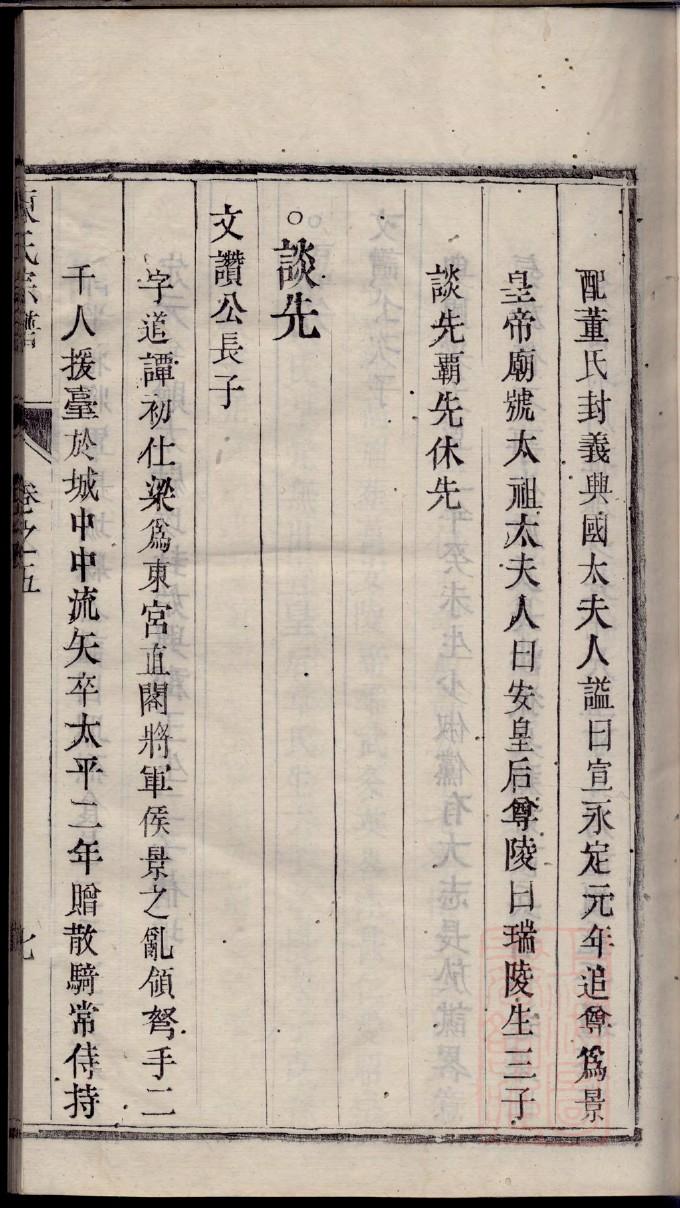 配董氏封義興國太夫人謚曰宣永定元年追尊爲景
皇帝廟號太祖太夫人曰安皇后尊陵曰瑞陵生三子
談先霸先休先
○談先
文讚公長子
字道譚初仕梁爲東宮直閣將軍侯景之亂領弩手二
千人援臺於城中中流矢卒太平二年贈散騎常侍持
陳氏宗譜
卷之五
七